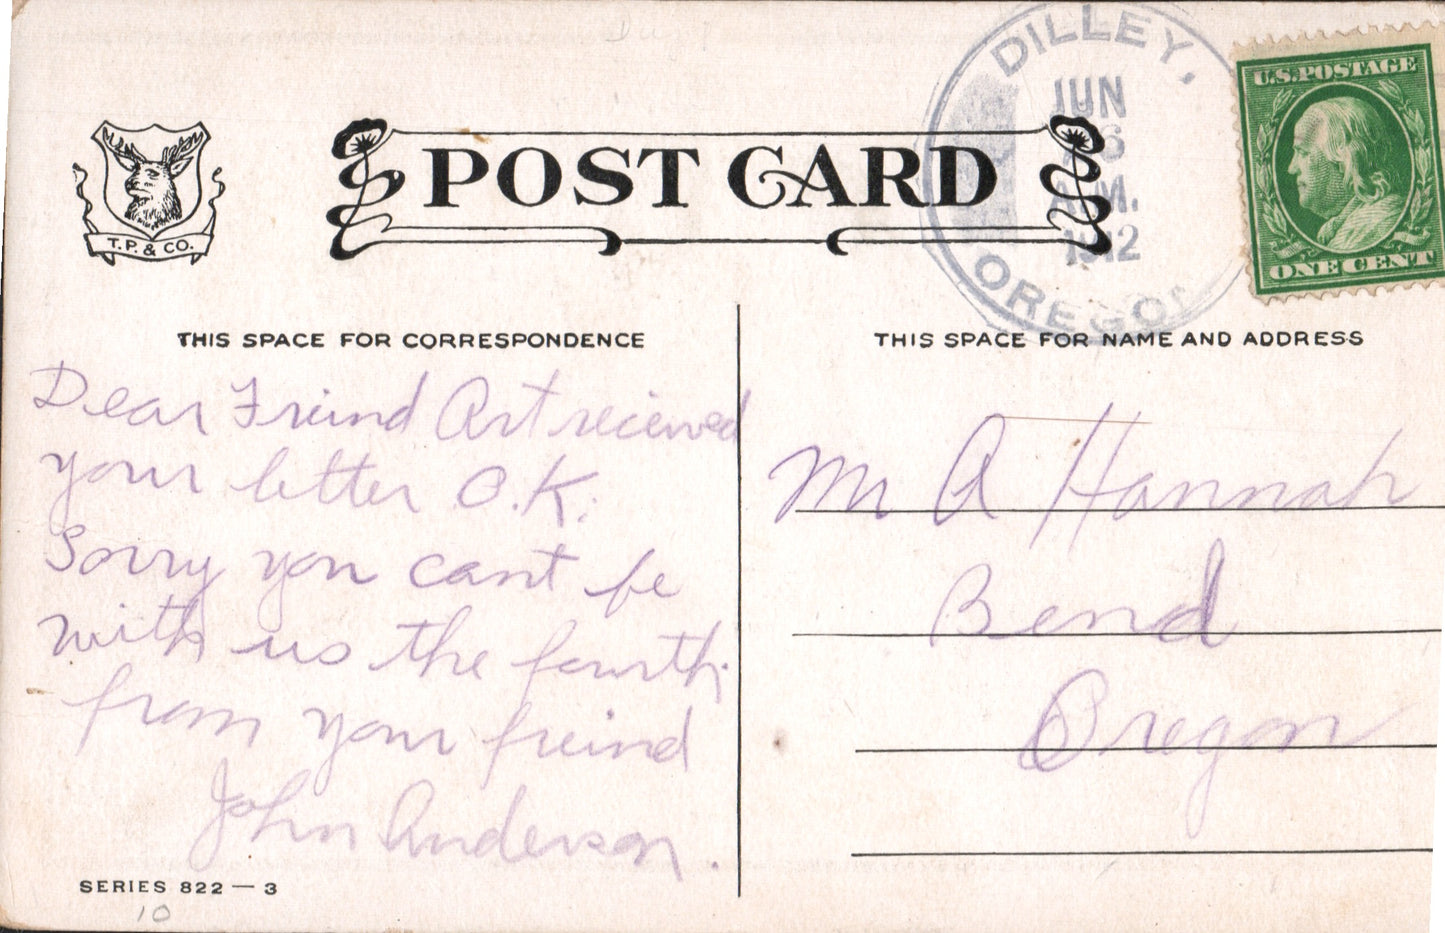 DILLEY,
JUN
26
A.M.
1912
OREGON
U.S. POSTAGE
ONE CENT
T. P. & CO.
POST CARD
THIS SPACE FOR CORRESPONDENCE
Dear Freind Art recieved
your letter O.K.
Sorry you cant be
with us the fourth
from your freind
John Anderson.
SERIES 822 — 3
10
THIS SPACE FOR NAME AND ADDRESS
Mr A Hannah
Bend
Oregon